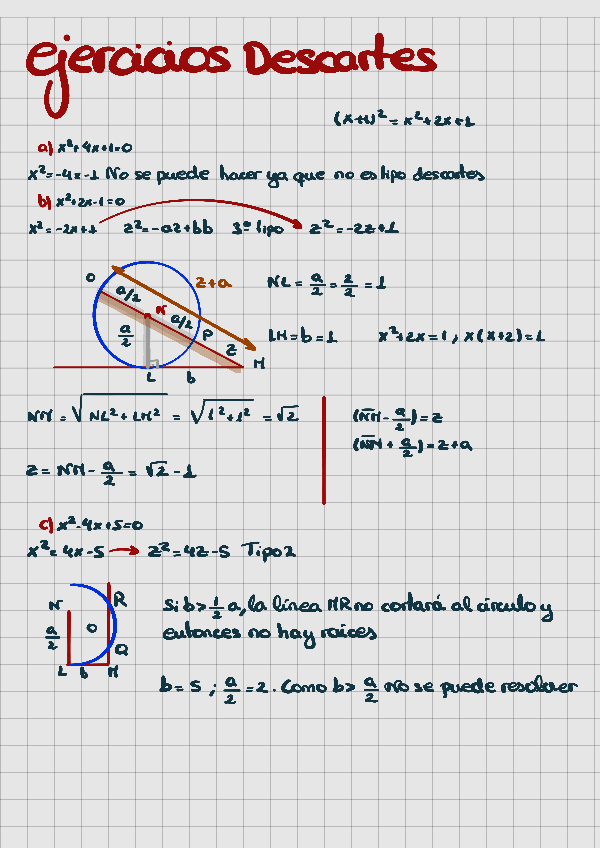 ejercicios Descartes
(x+1)² = x²+2x+1
a) x²+4x+1=0
x²=-4x-1 No se puede hacer ya que no es tipo descartes
b) x²+2x-1=0
x²=-2x+1 z²=-az+bb 3º tipo z²=-2z+1
O a/2 N a/2 P z M z+a
a/2 L b
NL = a/2 = 2/2 = 1
LM=b=1 x²+2x=1, x(x+2)=1
NM = √(NL²+LM²) = √(1²+1²) = √2
z = NM - a/2 = √2 - 1
(NM - a/2) = z
(NM + a/2) = z+a
c) x²-4x+5=0
x²=4x-5 → z²=4z-5 Tipo 2
N R
a/2 O
Q
L b M
Si b>1/2 a, la línea MR no cortará al círculo y
entonces no hay raíces
b=5 ; a/2=2. Como b> a/2 No se puede resolver